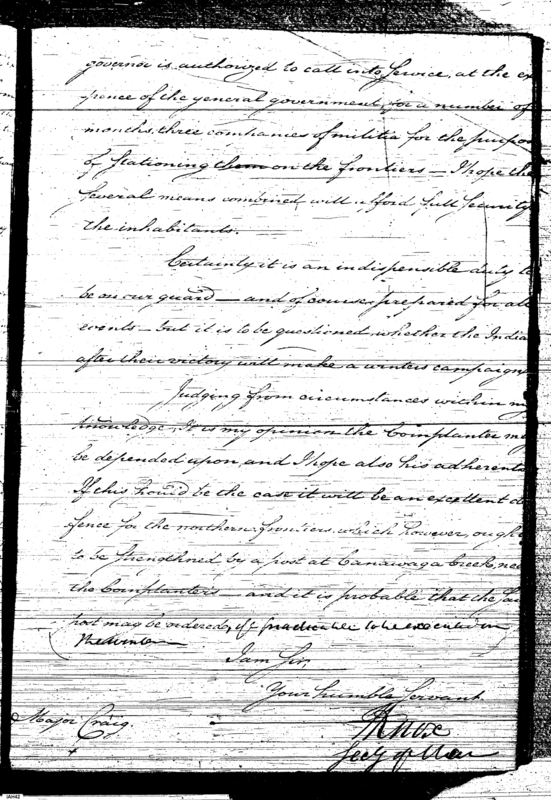 governor is authorized to call into service, at the ex
pence of the general government, for a number of
months, three companies of militia for the purpos
of stationing them on the frontiers — I hope the
several means combined will afford full security
the inhabitants.
Certainly it is an indispensible duty to
be on our guard — and of course prepared for all
events — but it is to be questioned whether the India
after their victory will make a winters campaign
Judging from circumstances within my
knowledge, It is my opinion the Cornplanter may
be depended upon, and I hope also his adherents
If this should be the case it will be an excellent de
fence for the northern frontiers which however, ought
to be strengthned by a post at Canawaga Creek, nea
the Cornplanters — and it is probable that the said
post may be ordered, if practicable to be executed in
the winter —
I am Sir,
Your humble Servant
HKnox
Secy of War
Major Craig.
IAH42